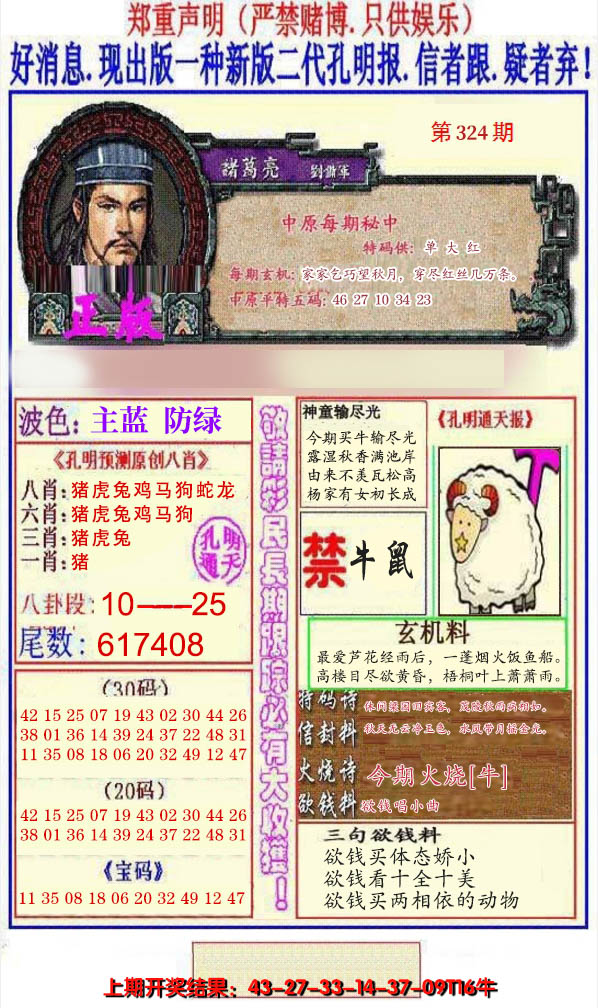 郑重声明（严禁赌博.只供娱乐）
好消息.现出版一种新版二代孔明报.信者跟.疑者弃！
第324期
諸葛亮 劉備軍
中原每期秘中
特码供：单大红
每期玄机：家家乞巧望秋月，穿尽红丝几万条。
中原平特五码：46 27 10 34 23
正版
波色：主蓝 防绿
《孔明预测原创八肖》
八肖：猪虎兔鸡马狗蛇龙
六肖：猪虎兔鸡马狗
三肖：猪虎兔
一肖：猪
孔明
通天
八卦段：10——25
尾数：617408
（30码）
42 15 25 07 19 43 02 30 44 26
38 01 36 14 39 24 37 22 48 31
11 35 08 18 06 20 32 49 12 47
（20码）
42 15 25 07 19 43 02 30 44 26
38 01 36 14 39 24 37 22 48 31
《宝码》
11 35 08 18 06 20 32 49 12 47
敬請彩民長期跟踪必有大收獲！
神童输尽光
今期买牛输尽光
露湿秋香满池岸
由来不羡瓦松高
杨家有女初长成
《孔明通天报》
禁牛鼠
玄机料
最爱芦花经雨后，一蓬烟火饭鱼船。
高楼目尽欲黄昏，梧桐叶上萧萧雨。
特码诗
休问梁园旧宾客，茂陵秋雨病相如。
信封料
秋天光云净玉色，水风带月摇金光。
火烧诗
今期火烧[牛]
欲钱料
欲钱唱小曲
三句欲钱料
欲钱买体态娇小
欲钱看十全十美
欲钱买两相依的动物
上期开奖结果：43-27-33-14-37-09T16牛